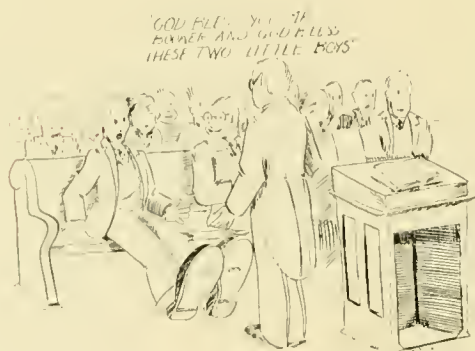 "GOD BLESS YOU
AND GOD BLESS
THESE TWO LITTLE BOYS"